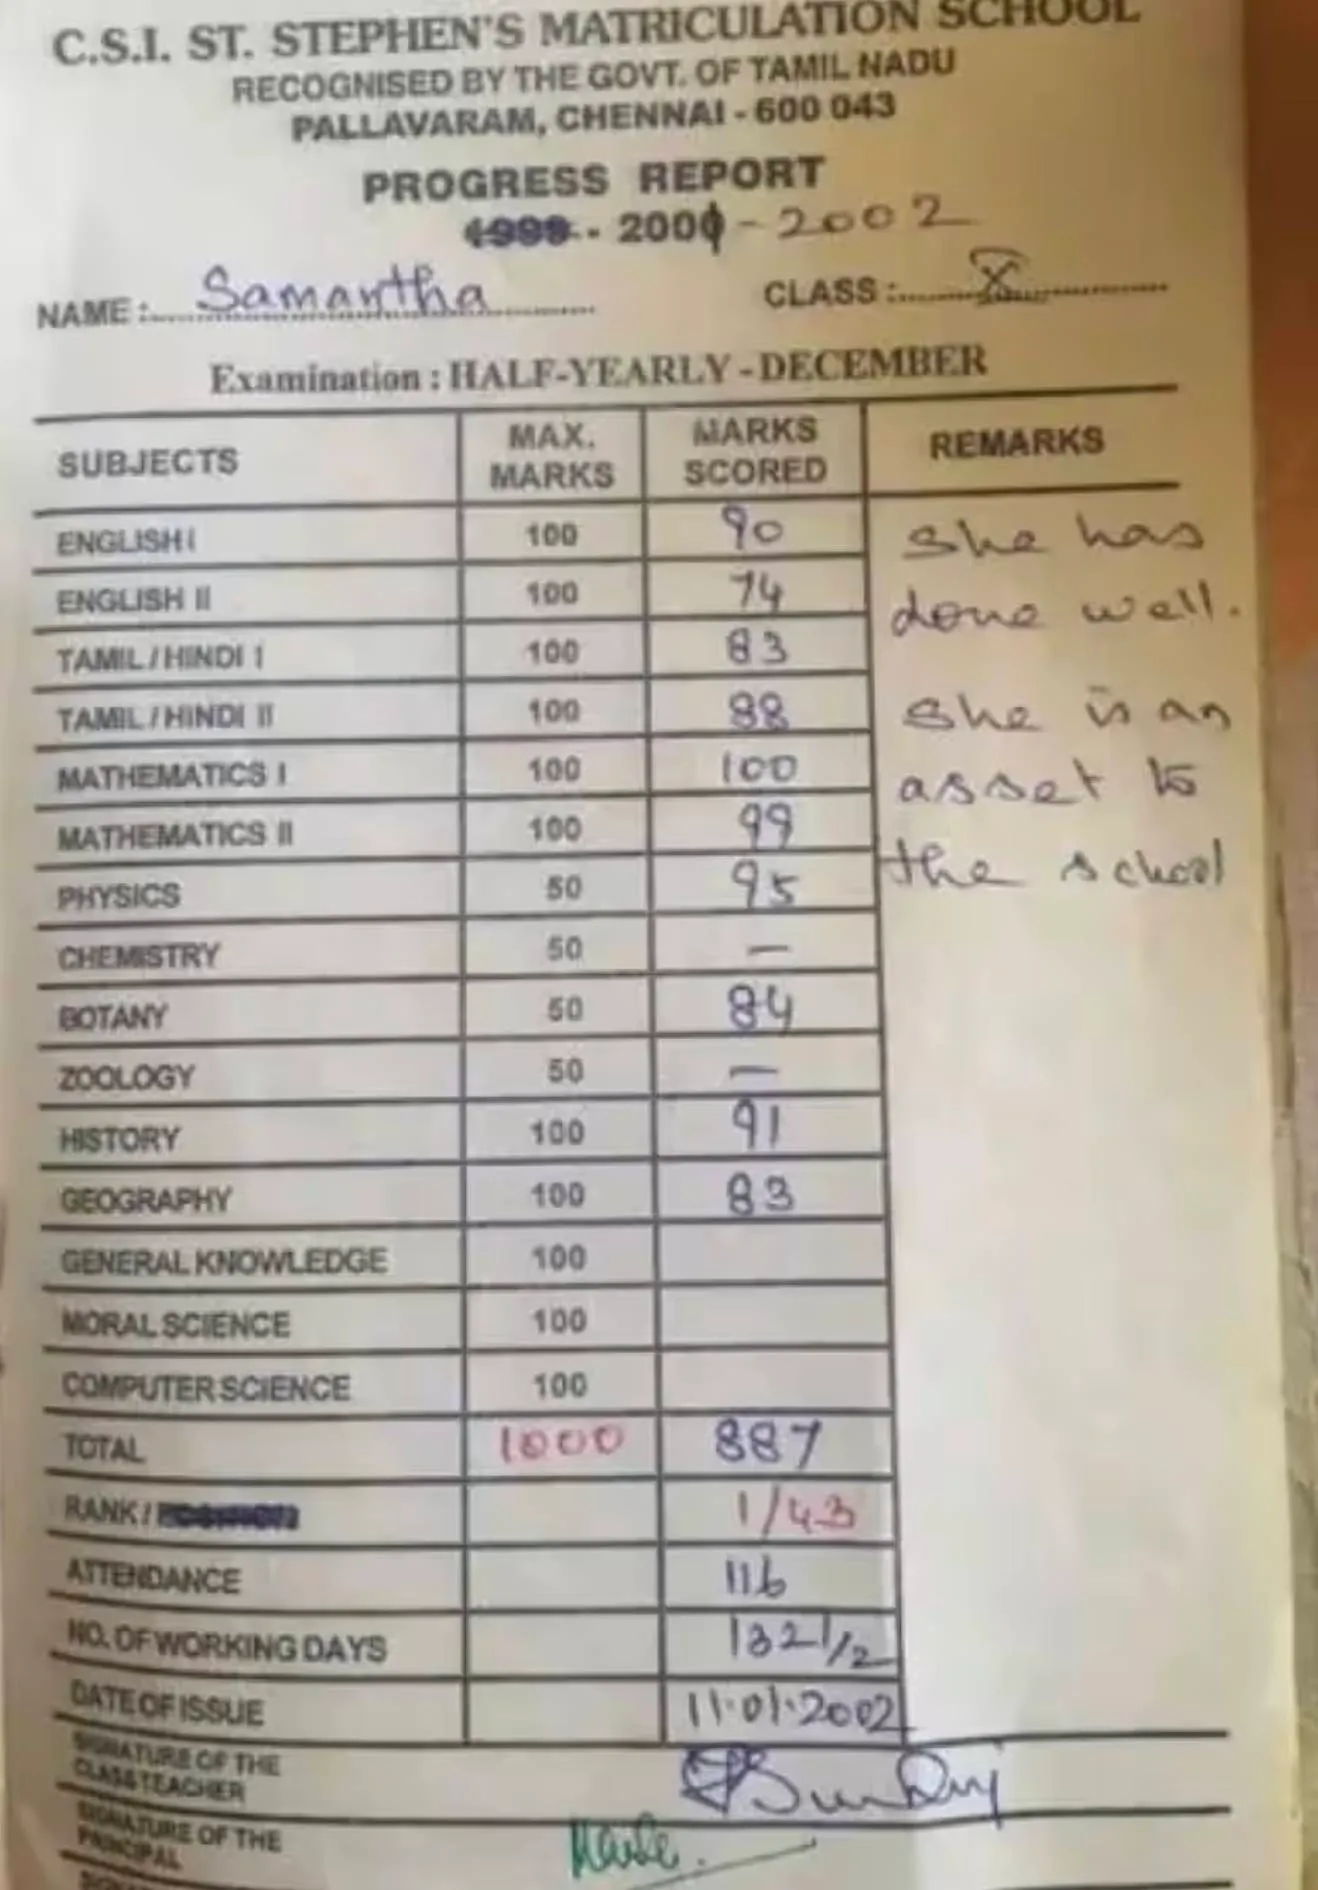 C.S.I. ST. STEPHEN'S MATRICULATION SCHOOL
RECOGNISED BY THE GOVT. OF TAMIL NADU
PALLAVARAM, CHENNAI - 600 043
PROGRESS REPORT
1999 - 2001 - 2002
NAME : Samantha CLASS : X
Examination : HALF-YEARLY - DECEMBER
SUBJECTS MAX. MARKS MARKS SCORED REMARKS
ENGLISH I 100 90 She has
ENGLISH II 100 74 done well.
TAMIL / HINDI I 100 83
TAMIL / HINDI II 100 88 She is an
MATHEMATICS I 100 100 asset to
MATHEMATICS II 100 99 the school
PHYSICS 50 95
CHEMISTRY 50 —
BOTANY 50 84
ZOOLOGY 50 —
HISTORY 100 91
GEOGRAPHY 100 83
GENERAL KNOWLEDGE 100
MORAL SCIENCE 100
COMPUTER SCIENCE 100
TOTAL 1000 887
RANK / 1/43
ATTENDANCE 116
NO. OF WORKING DAYS 132 1/2
DATE OF ISSUE 11.01.2002
SIGNATURE OF THE
CLASS TEACHER
SIGNATURE OF THE
PRINCIPAL